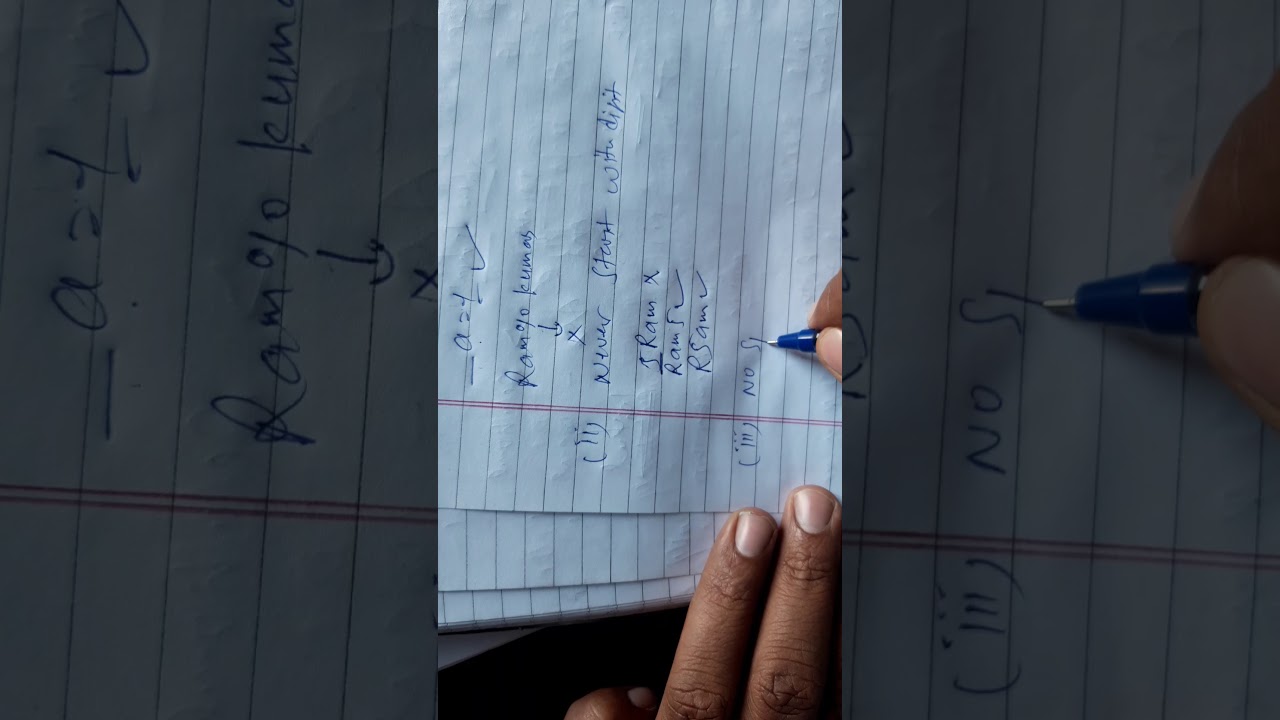 _a=1 ✓
Ram%kumar
↓
×
(ii) Never Start with digit
5Ram ×
Ram5 ✓
R5am ✓
(iii) NO